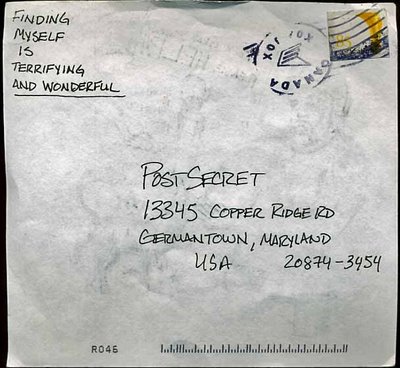 FINDING
MYSELF
IS
TERRIFYING
AND WONDERFUL
CANADA
K0J 10X
POSTSECRET
13345 COPPER RIDGE RD
GERMANTOWN, MARYLAND
USA 20874-3454
R046